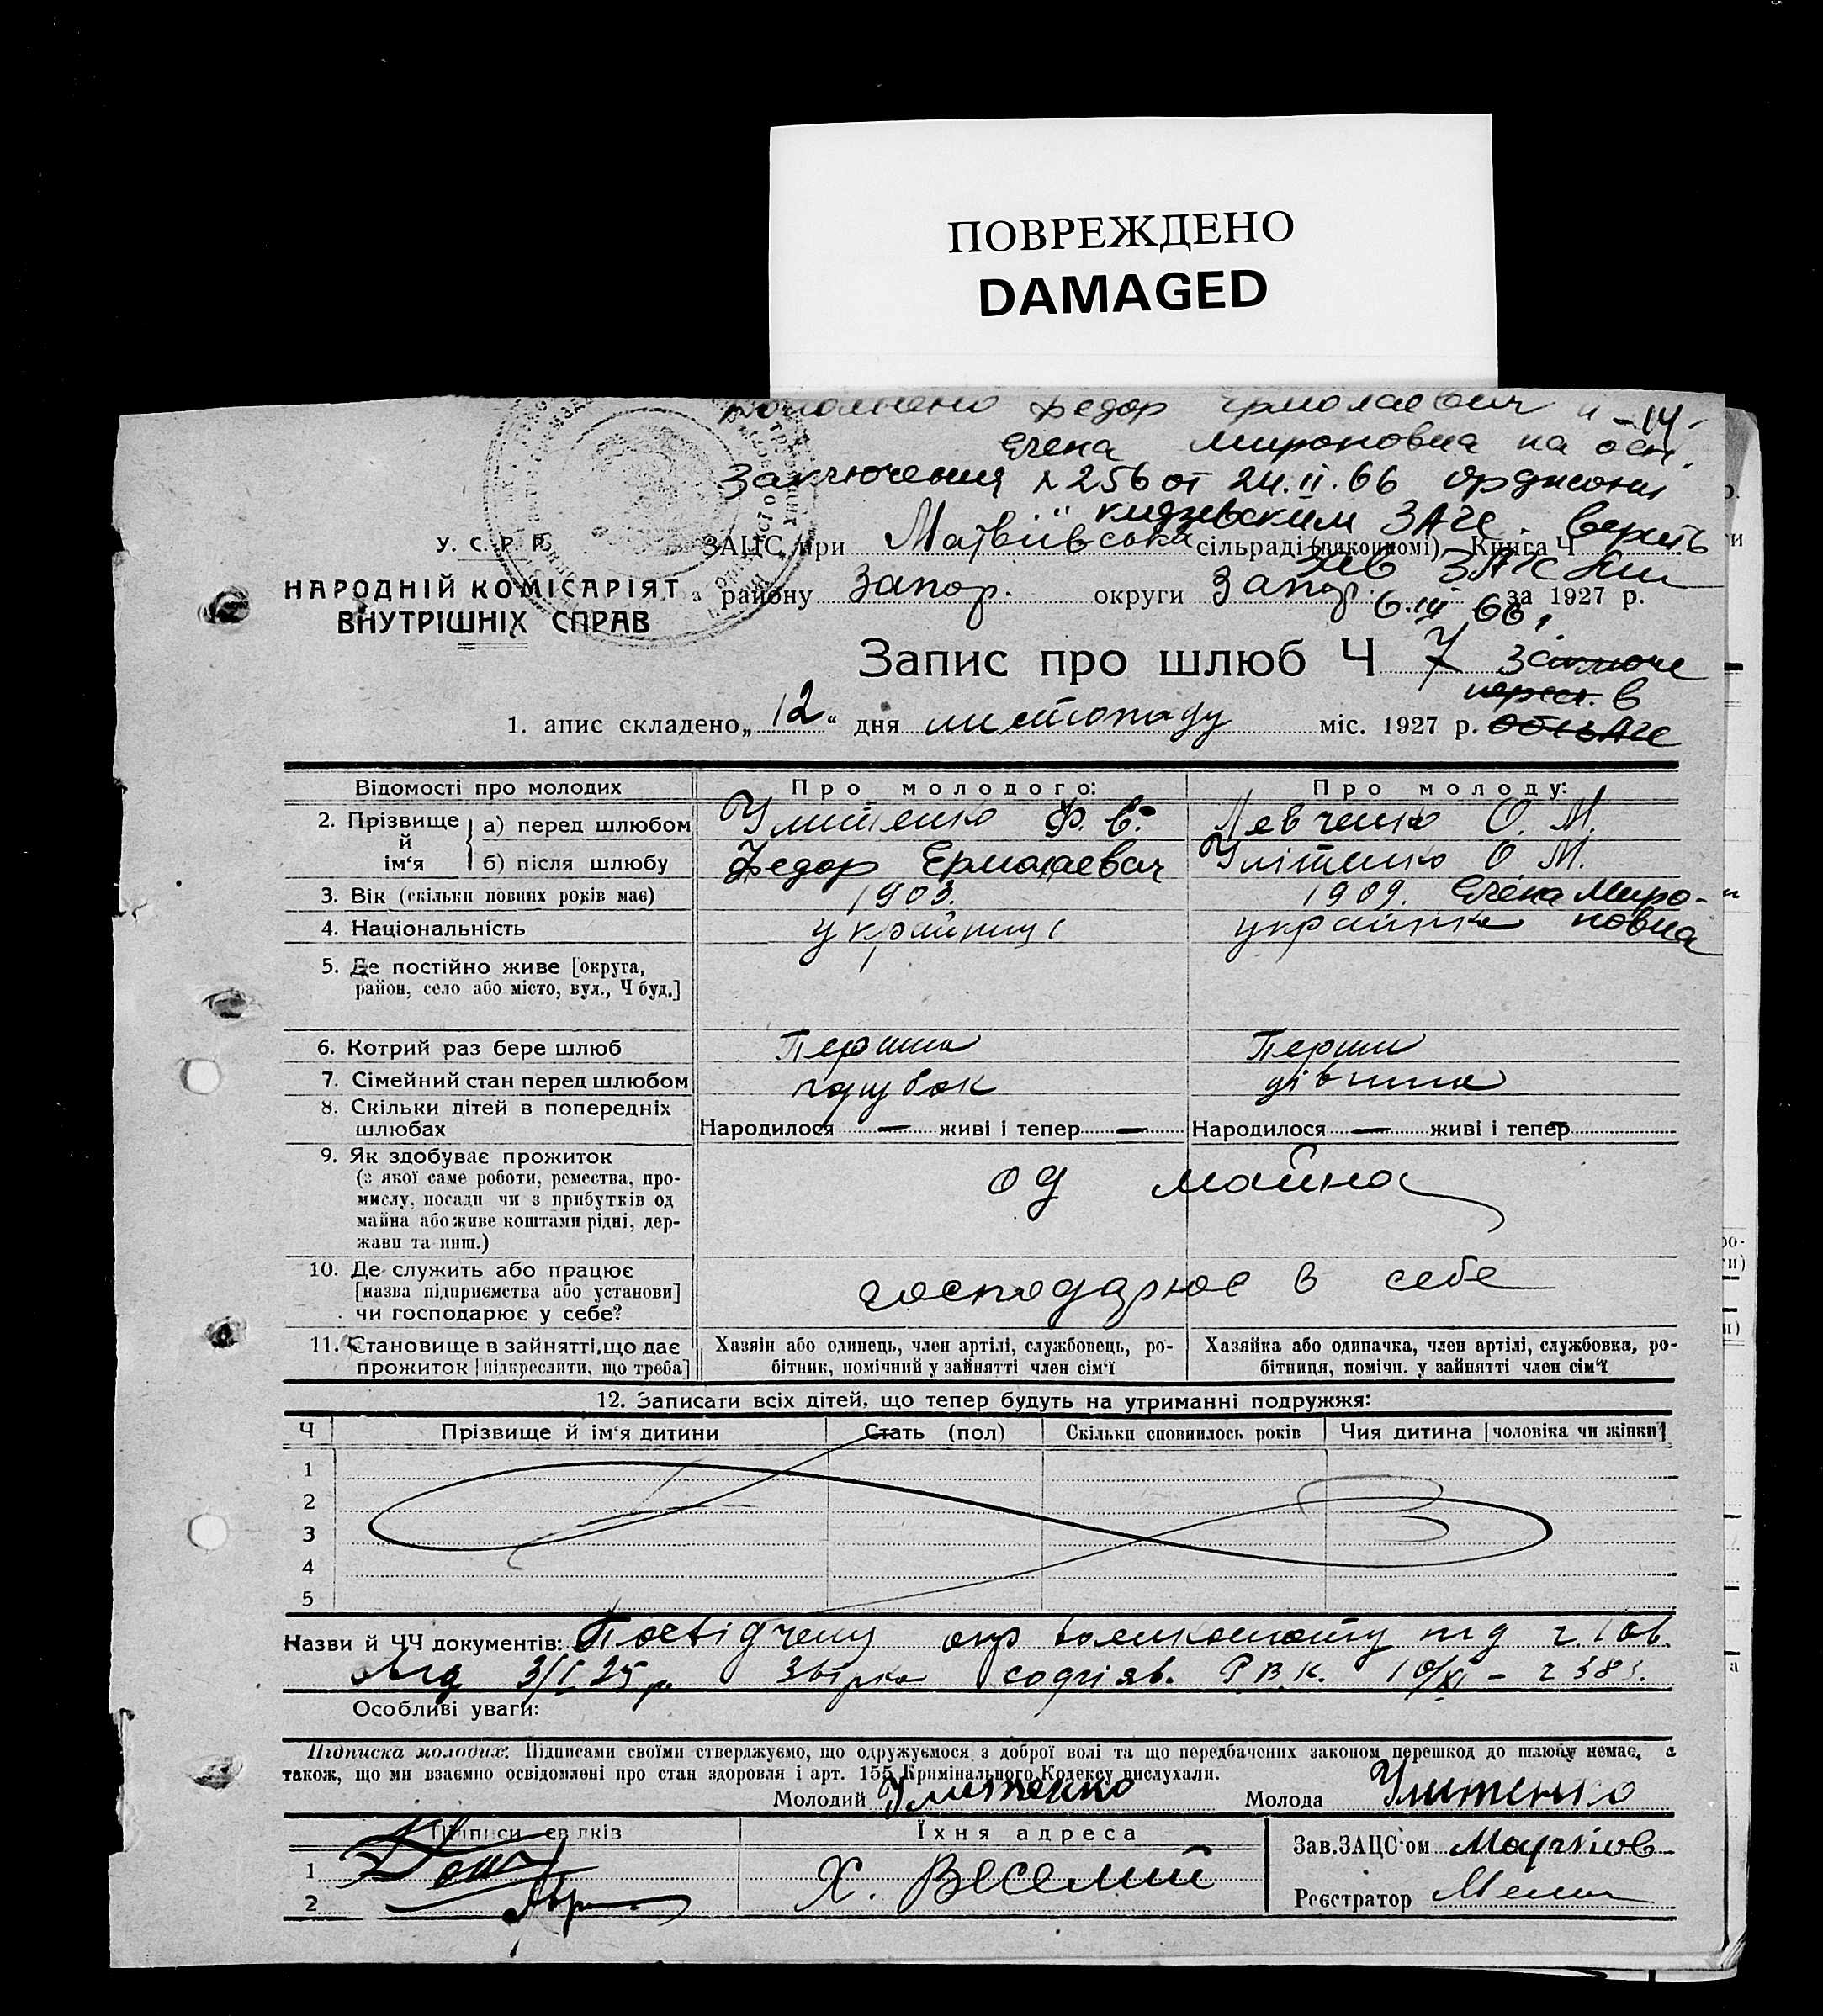 ПОВРЕЖДЕНО
DAMAGED
Федор Ермолаевич и -14.
Елена Мироновна на осн.
Заключения N 256 от 24.II.66 Орджони
кидзевским ЗАГС. Верить
У. С. Р. Р.
ЗАЦС при Матвіївська сільраді (виконкомі) Книга Ч
Зав ЗАГС
НАРОДНІЙ КОМІСАРІЯТ
ВНУТРІШНІХ СПРАВ
району Запор. округи Запор. за 1927 р.
6.III 66
Запис про шлюб Ч 7
1. апис складено „12“ дня листопаду міс. 1927 р.
Відомості про молодих
Про молодого:
Про молоду:
2. Прізвище й ім‘я
а) перед шлюбом
Улитенко Ф. Е.
Левченко О. М.
б) після шлюбу
Федор Ермолаевич
Улітенко О М.
3. Вік (скільки повних років має)
1903.
1909. Елена Миро-
новна
4. Національність
українець
українка
5. Де постійно живе [округа,
район, село або місто, вул., Ч буд.]
6. Котрий раз бере шлюб
Перший
Перший
7. Сімейний стан перед шлюбом
парубок
дівчина
8. Скільки дітей в попередніх
шлюбах
Народилося — живі і тепер —
Народилося — живі і тепер
9. Як здобуває прожиток
(з якої саме роботи, ремества, про-
мислу, посади чи з прибутків од
майна або живе коштами рідні, дер-
жави та инш.)
од майна
10. Де служить або працює
[назва підприємства або установи]
чи господарює у себе?
господарює в себе
11. Становище в зайнятті, що дає
прожиток [підкреслити, що треба]
Хазяін або одинець, член артілі, службовець, ро-
бітник, помічний у зайнятті член сім‘ї
Хазяйка або одиначка, член артілі, службовка, ро-
бітниця, помічн. у зайнятті член сім‘ї
12. Записати всіх дітей, що тепер будуть на утриманні подружжя:
Ч
Прізвище й ім‘я дитини
Стать (пол)
Скільки сповнилось років
Чия дитина [чоловіка чи жінки]
1
2
3
4
5
Назви й ЧЧ документів:
3/I 25 р. Р.В.К. 10/XI –
Особливі уваги:
Підписка молодих: Підписами своїми стверджуємо, що одружуємося з доброї волі та що передбачених законом перешкод до шлюбу немає, а
також, що ми взаємно освідомлені про стан здоровля і арт. 155 Кримінального Кодексу вислухали.
Молодий Улитенко Молода Улитенко
Підписи свідків
Їхня адреса
1
2
Х. Веселий
Зав. ЗАЦС‘ом
Реєстратор